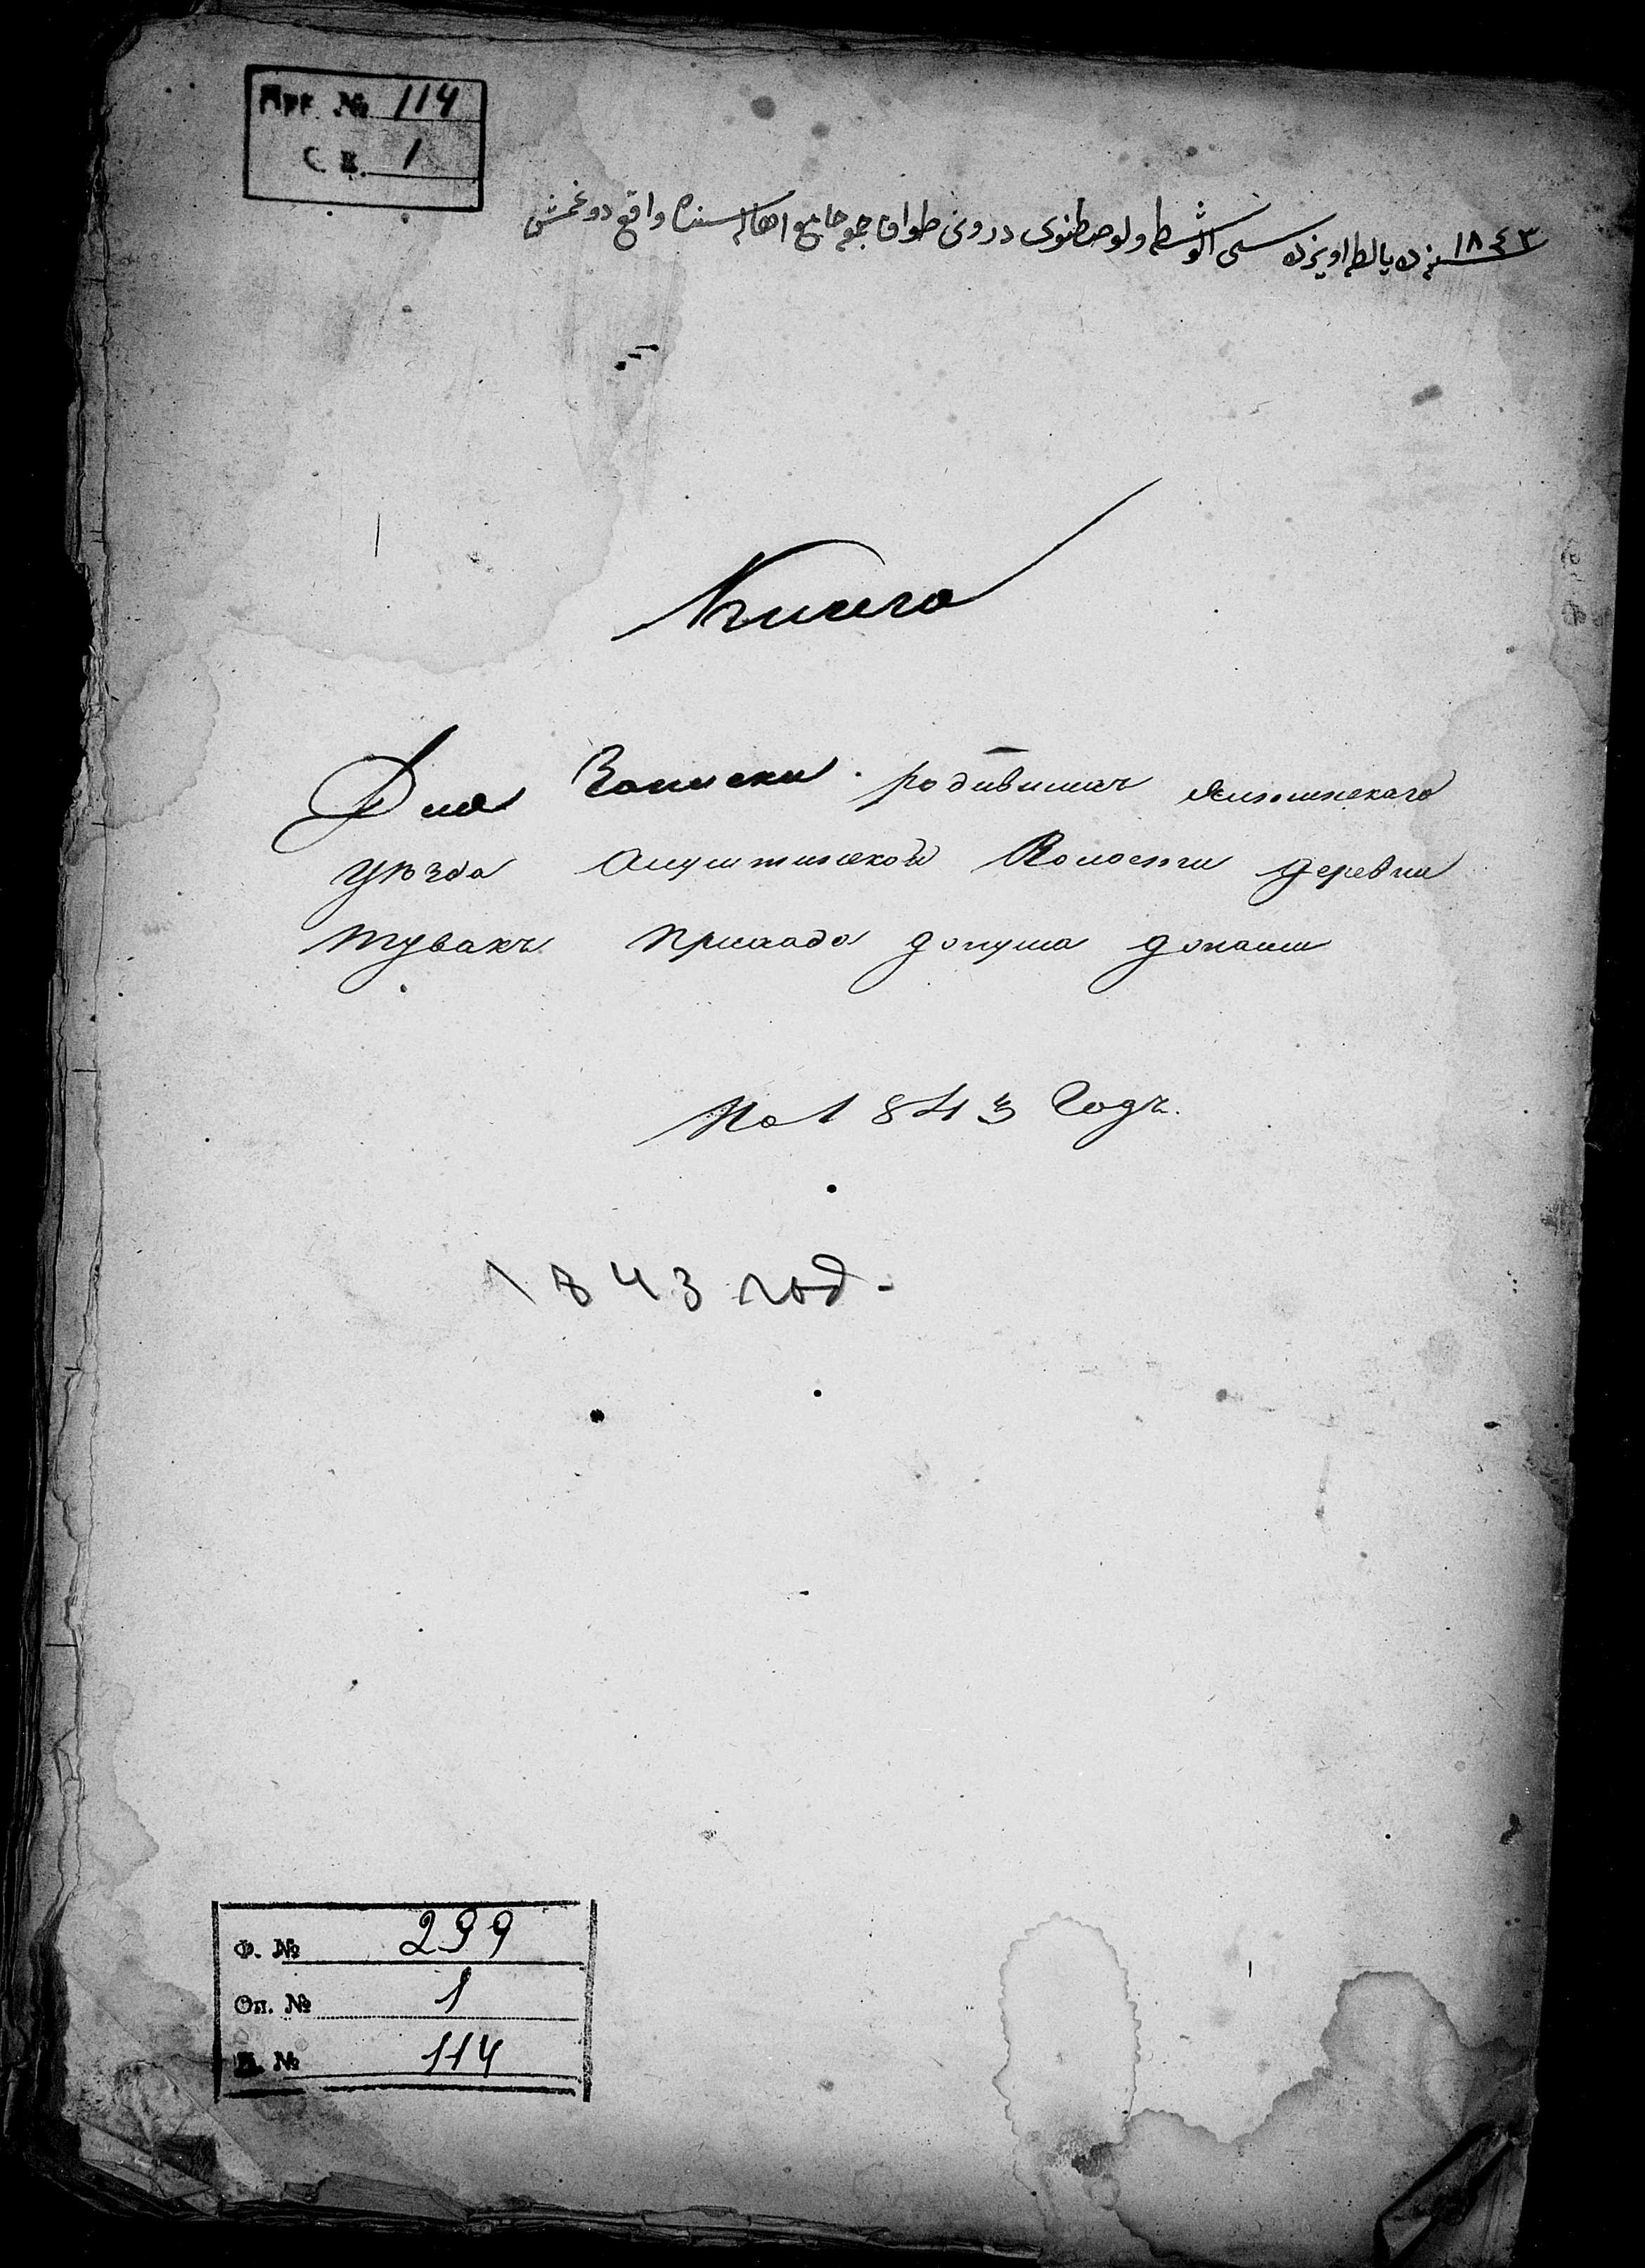 Арх. № 114
С. В. 1
١٨٤٣ سنه ده يالطه اويزده سى الوشطه ولوصطنوى درونى طواقا جمع جامع اهاليسنده واقع دوغمش
Книга
Для Записки родившихъ Ялтинскаго
уѣзда Алуштинской Волости деревни
тувакъ прихода
На 1843 Годъ.
1843 год-
Ф. № 299
Оп. № 1
Д. № 114